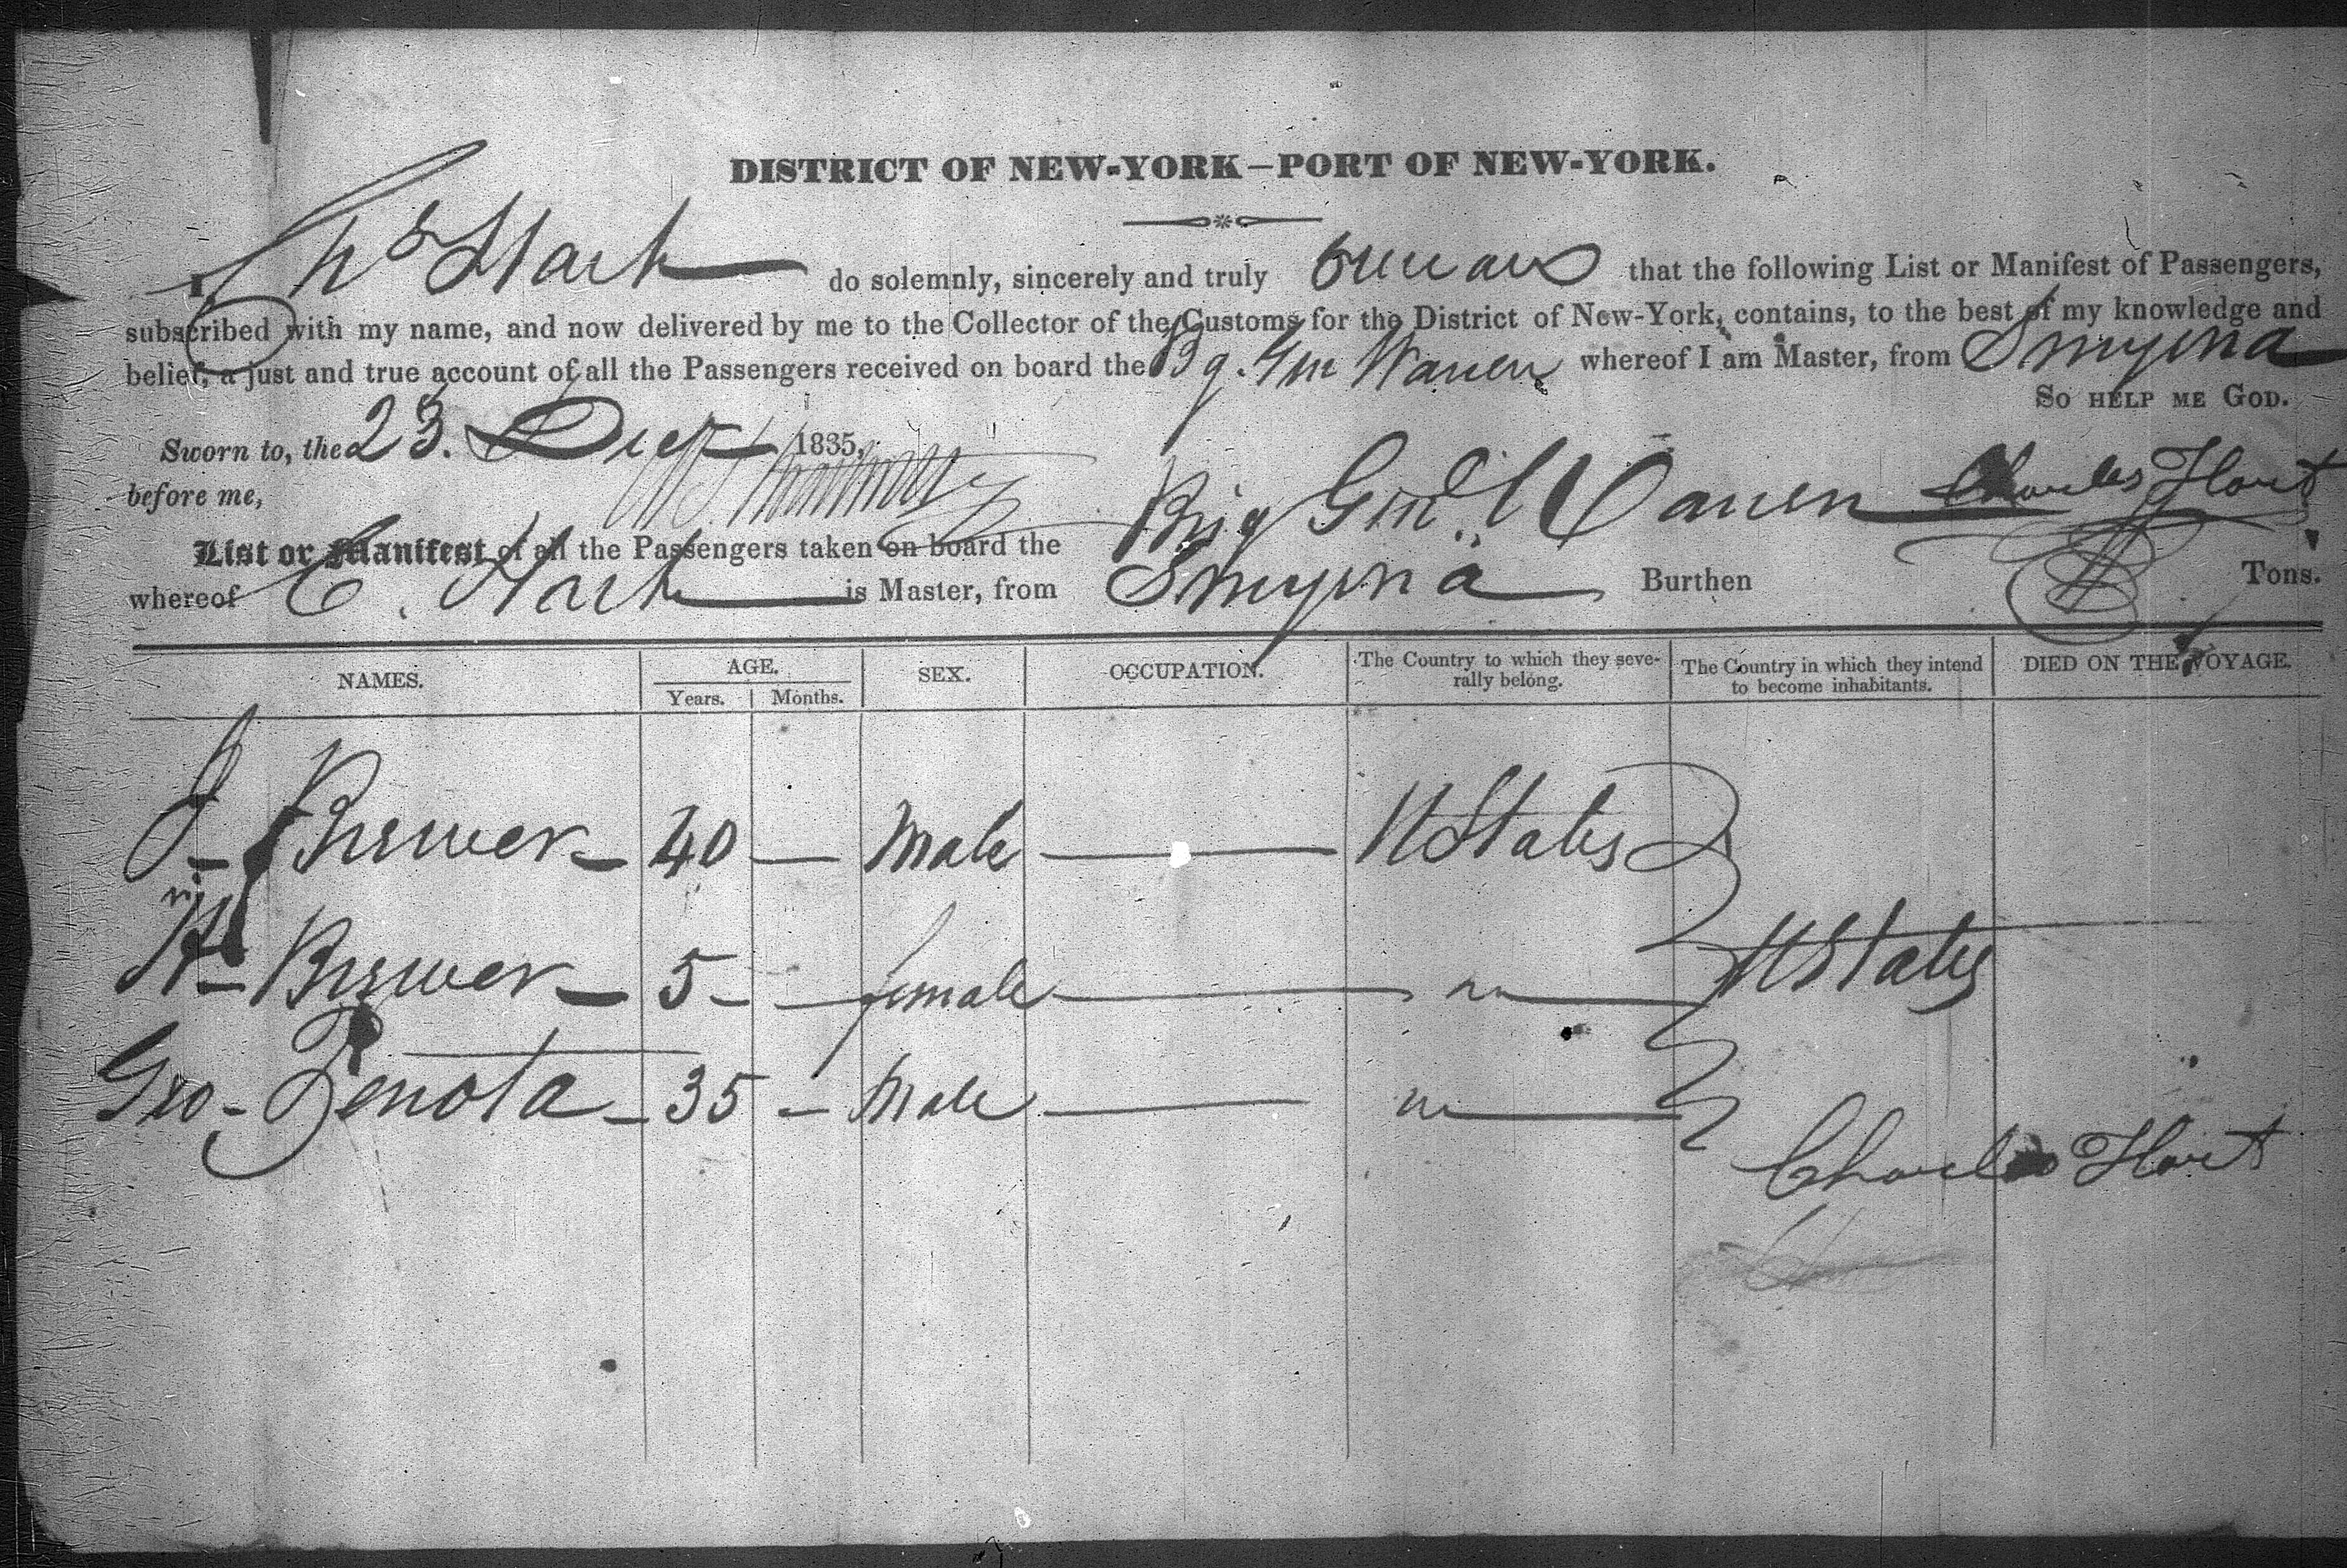 DISTRICT OF NEW-YORK—PORT OF NEW-YORK.
I, Chs Hart do solemnly, sincerely and truly swear that the following List or Manifest of Passengers,
subscribed with my name, and now delivered by me to the Collector of the Customs for the District of New-York, contains, to the best of my knowledge and
belief, a just and true account of all the Passengers received on board the Bg. Gm Warren whereof I am Master, from Smyrna
So HELP ME GOD.
Sworn to, the 23. Dec 1835,
before me,
Charles Hart
List or Manifest of all the Passengers taken on board the Brig Gnl Warren
whereof C. Hart is Master, from Smyrna Burthen Tons.
NAMES. AGE. SEX. OCCUPATION. The Country to which they seve- The Country in which they intend DIED ON THE VOYAGE.
Years. Months. rally belong. to become inhabitants.
J Brewer 40 — Male — U States
Brewer 5 — female — " U States
Geo Zenota 35 — Male — "
Charles Hart